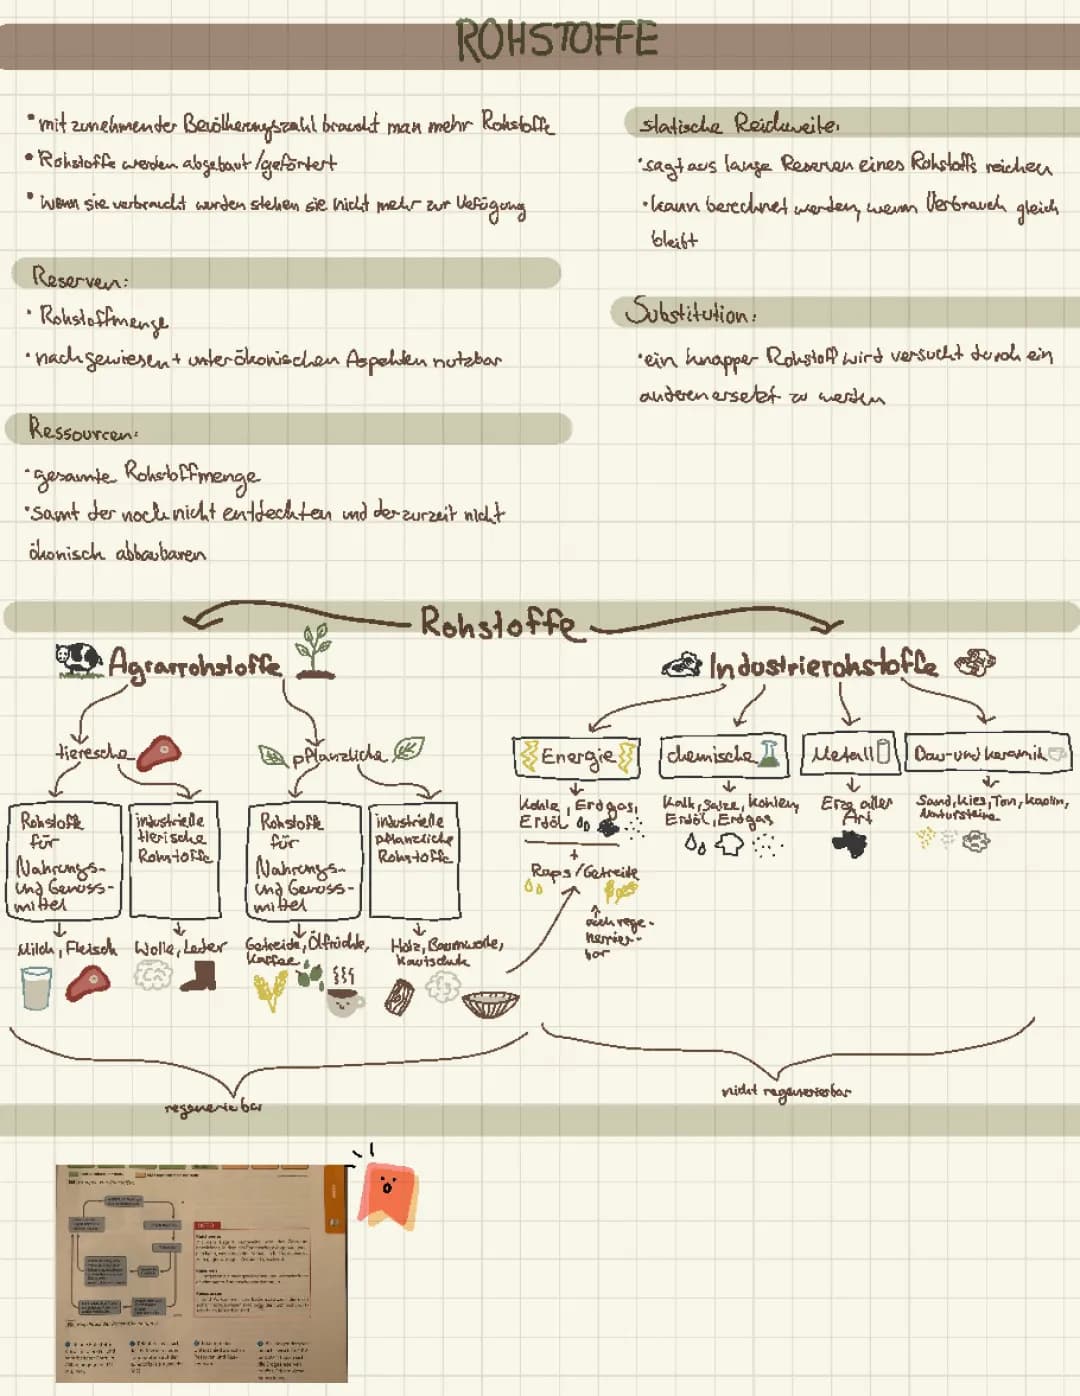 ROHSTOFFE
• mit zunehmender Bevölkerungszahl braucht man mehr Rohstoffe
• Rohstoffe werden abgebaut/gefördert
• wenn sie verbraucht wurden stehen sie nicht mehr zur Vefügung
Reserven:
• Rohstoffmenge
• nachgewiesen + unter ökonischen Aspekten nutzbar
Ressourcen:
• gesamte Rohstoffmenge
• samt der noch nicht entdeckten und der zurzeit nicht
ökonisch abbaubaren
statische Reichweite:
• sagt aus lange Reserven eines Rohstoffs reichen
• kann berechnet werden, wenn Verbrauch gleich
bleibt
Substitution:
• ein knapper Rohstoff wird versucht durch ein
anderen ersetzt zu werden
Rohstoffe
Agrarrohstoffe
tieresche
Rohstoffe
für
Nahrungs-
und Genuss-
mittel
Milch, Fleisch
industrielle
tierische
Rohstoffe
Wolle, Leder
pflanzliche
Rohstoffe
für
Nahrungs-
und Genuss-
mittel
Getreide, Ölfrüchte,
Kaffee
industrielle
pflanzliche
Rohstoffe
Holz, Baumwolle,
Kautschuk
regenerierbar
Industrierohstoffe
Energie
Kohle, Erdgas,
Erdöl
+
Raps/Getreide
auch rege-
nerier-
bar
chemische
Kalk, Salze, Kohlen,
Erdöl, Erdgas
Metall
Erze aller
Art
Bau- und Keramik
Sand, Kies, Ton, Kaolin,
Natursteine
nicht regenerierbar